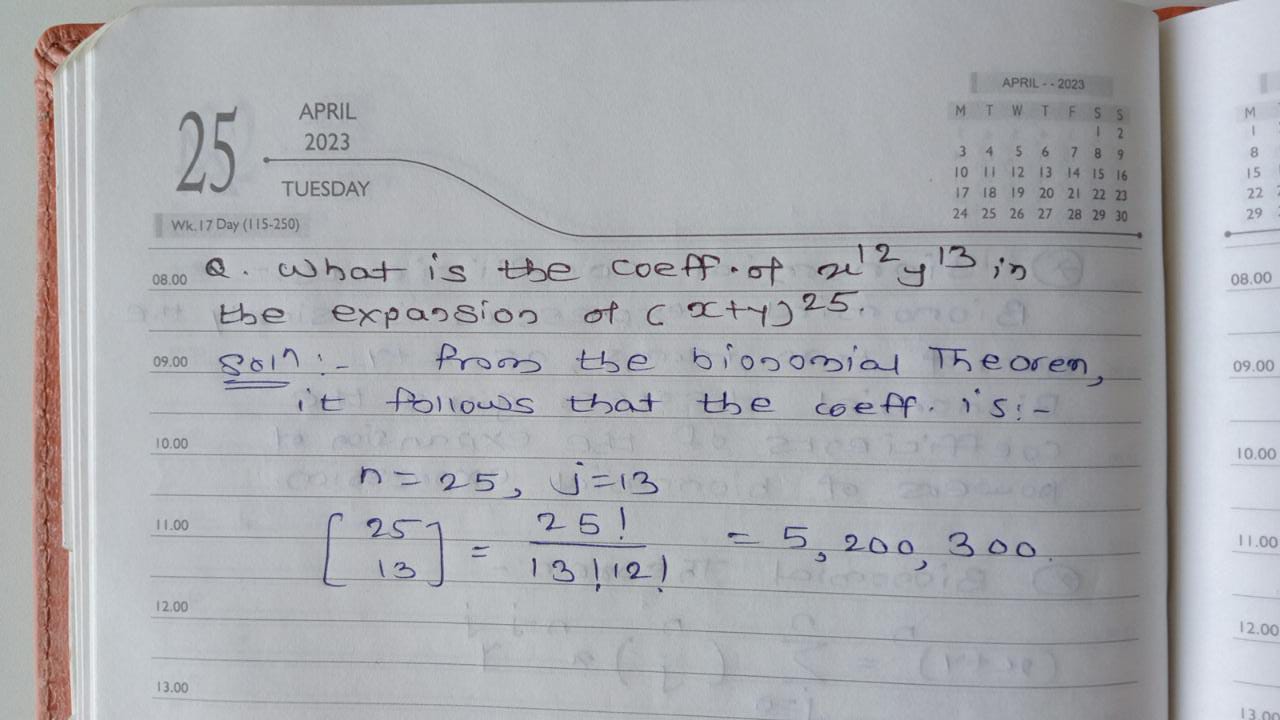 25
APRIL
2023
TUESDAY
Wk.17 Day (115-250)
APRIL - - 2023
M T W T F S S
1 2
3 4 5 6 7 8 9
10 11 12 13 14 15 16
17 18 19 20 21 22 23
24 25 26 27 28 29 30
M
1
8
15
22
29
08.00 Q. What is the coeff. of x¹²y¹³ in
the expansion of (x+y)²⁵.
09.00 Solⁿ :- from the binomial Theorem,
it follows that the coeff. is:-
10.00
n = 25, j=13
11.00 [25 13] = 25!/13!12! = 5,200,300.
12.00
13.00
08.00
09.00
10.00
11.00
12.00
13.00